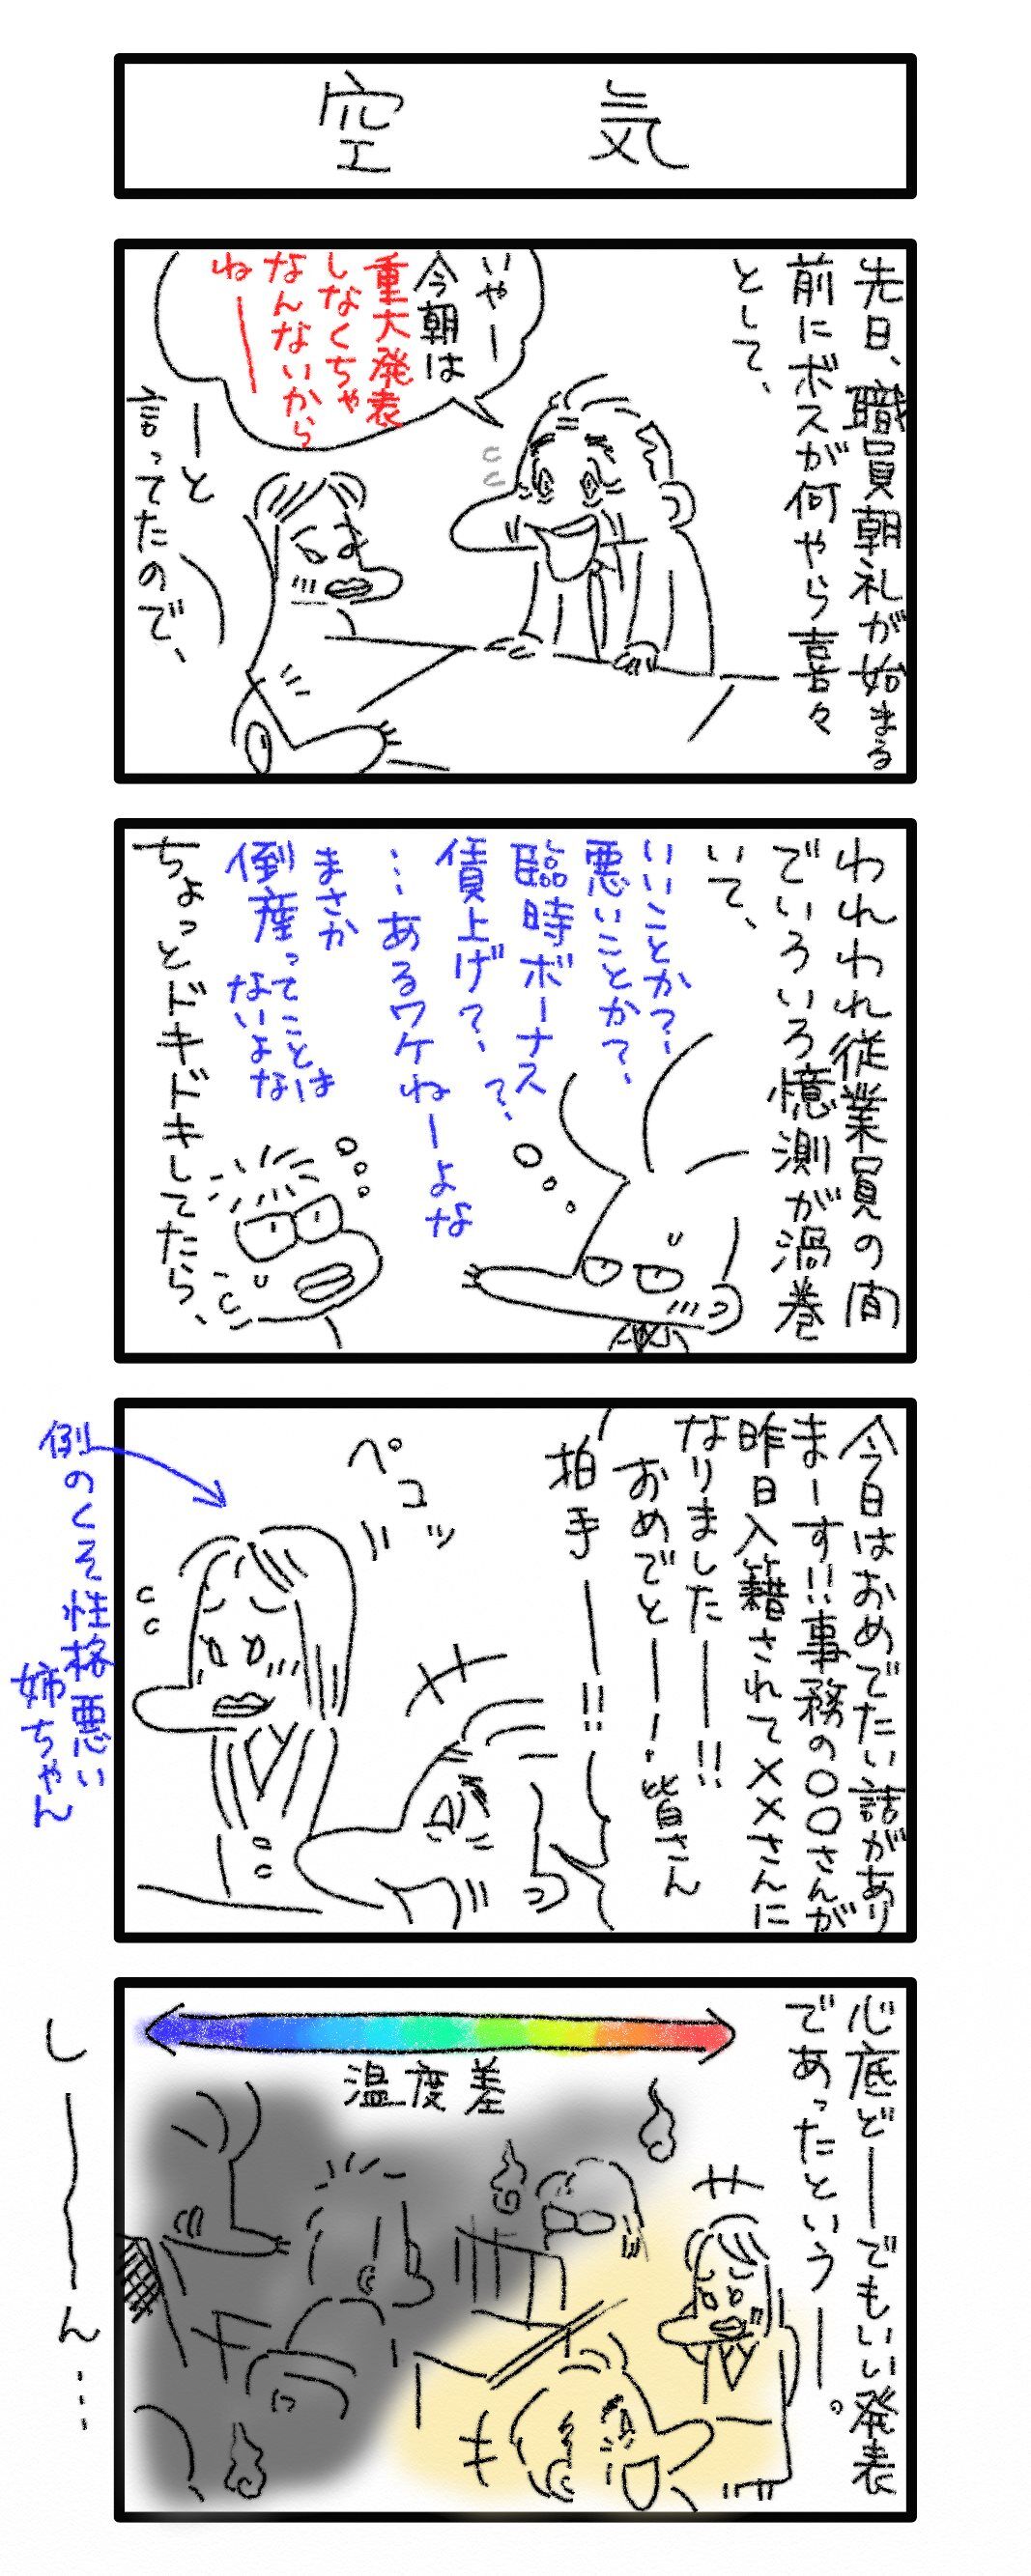 空気
先日、職員朝礼が始まる
前にボスが何やら喜々
として、
いやー
今朝は
重大発表
しなくちゃ
なんないから
ねー
ーと
言ってたので、
われわれ従業員の間
でいろいろ憶測が渦巻
いて、
いいことか?、
悪いことか?、
臨時ボーナス
?、
賃上げ?、
…あるワケねーよな
まさか
倒産ってことは
ないよな
ちょっとドキドキしてたら、
今日はおめでたい話があり
まーす!!事務の○○さんが
昨日入籍されて××さんに
なりましたー!!
おめでとー!.皆さん
拍手ー!!
ペコッ
例のくそ性格悪い
姉ちゃん
心底どーでもいい発表
であったというー。
温度差
しーん…